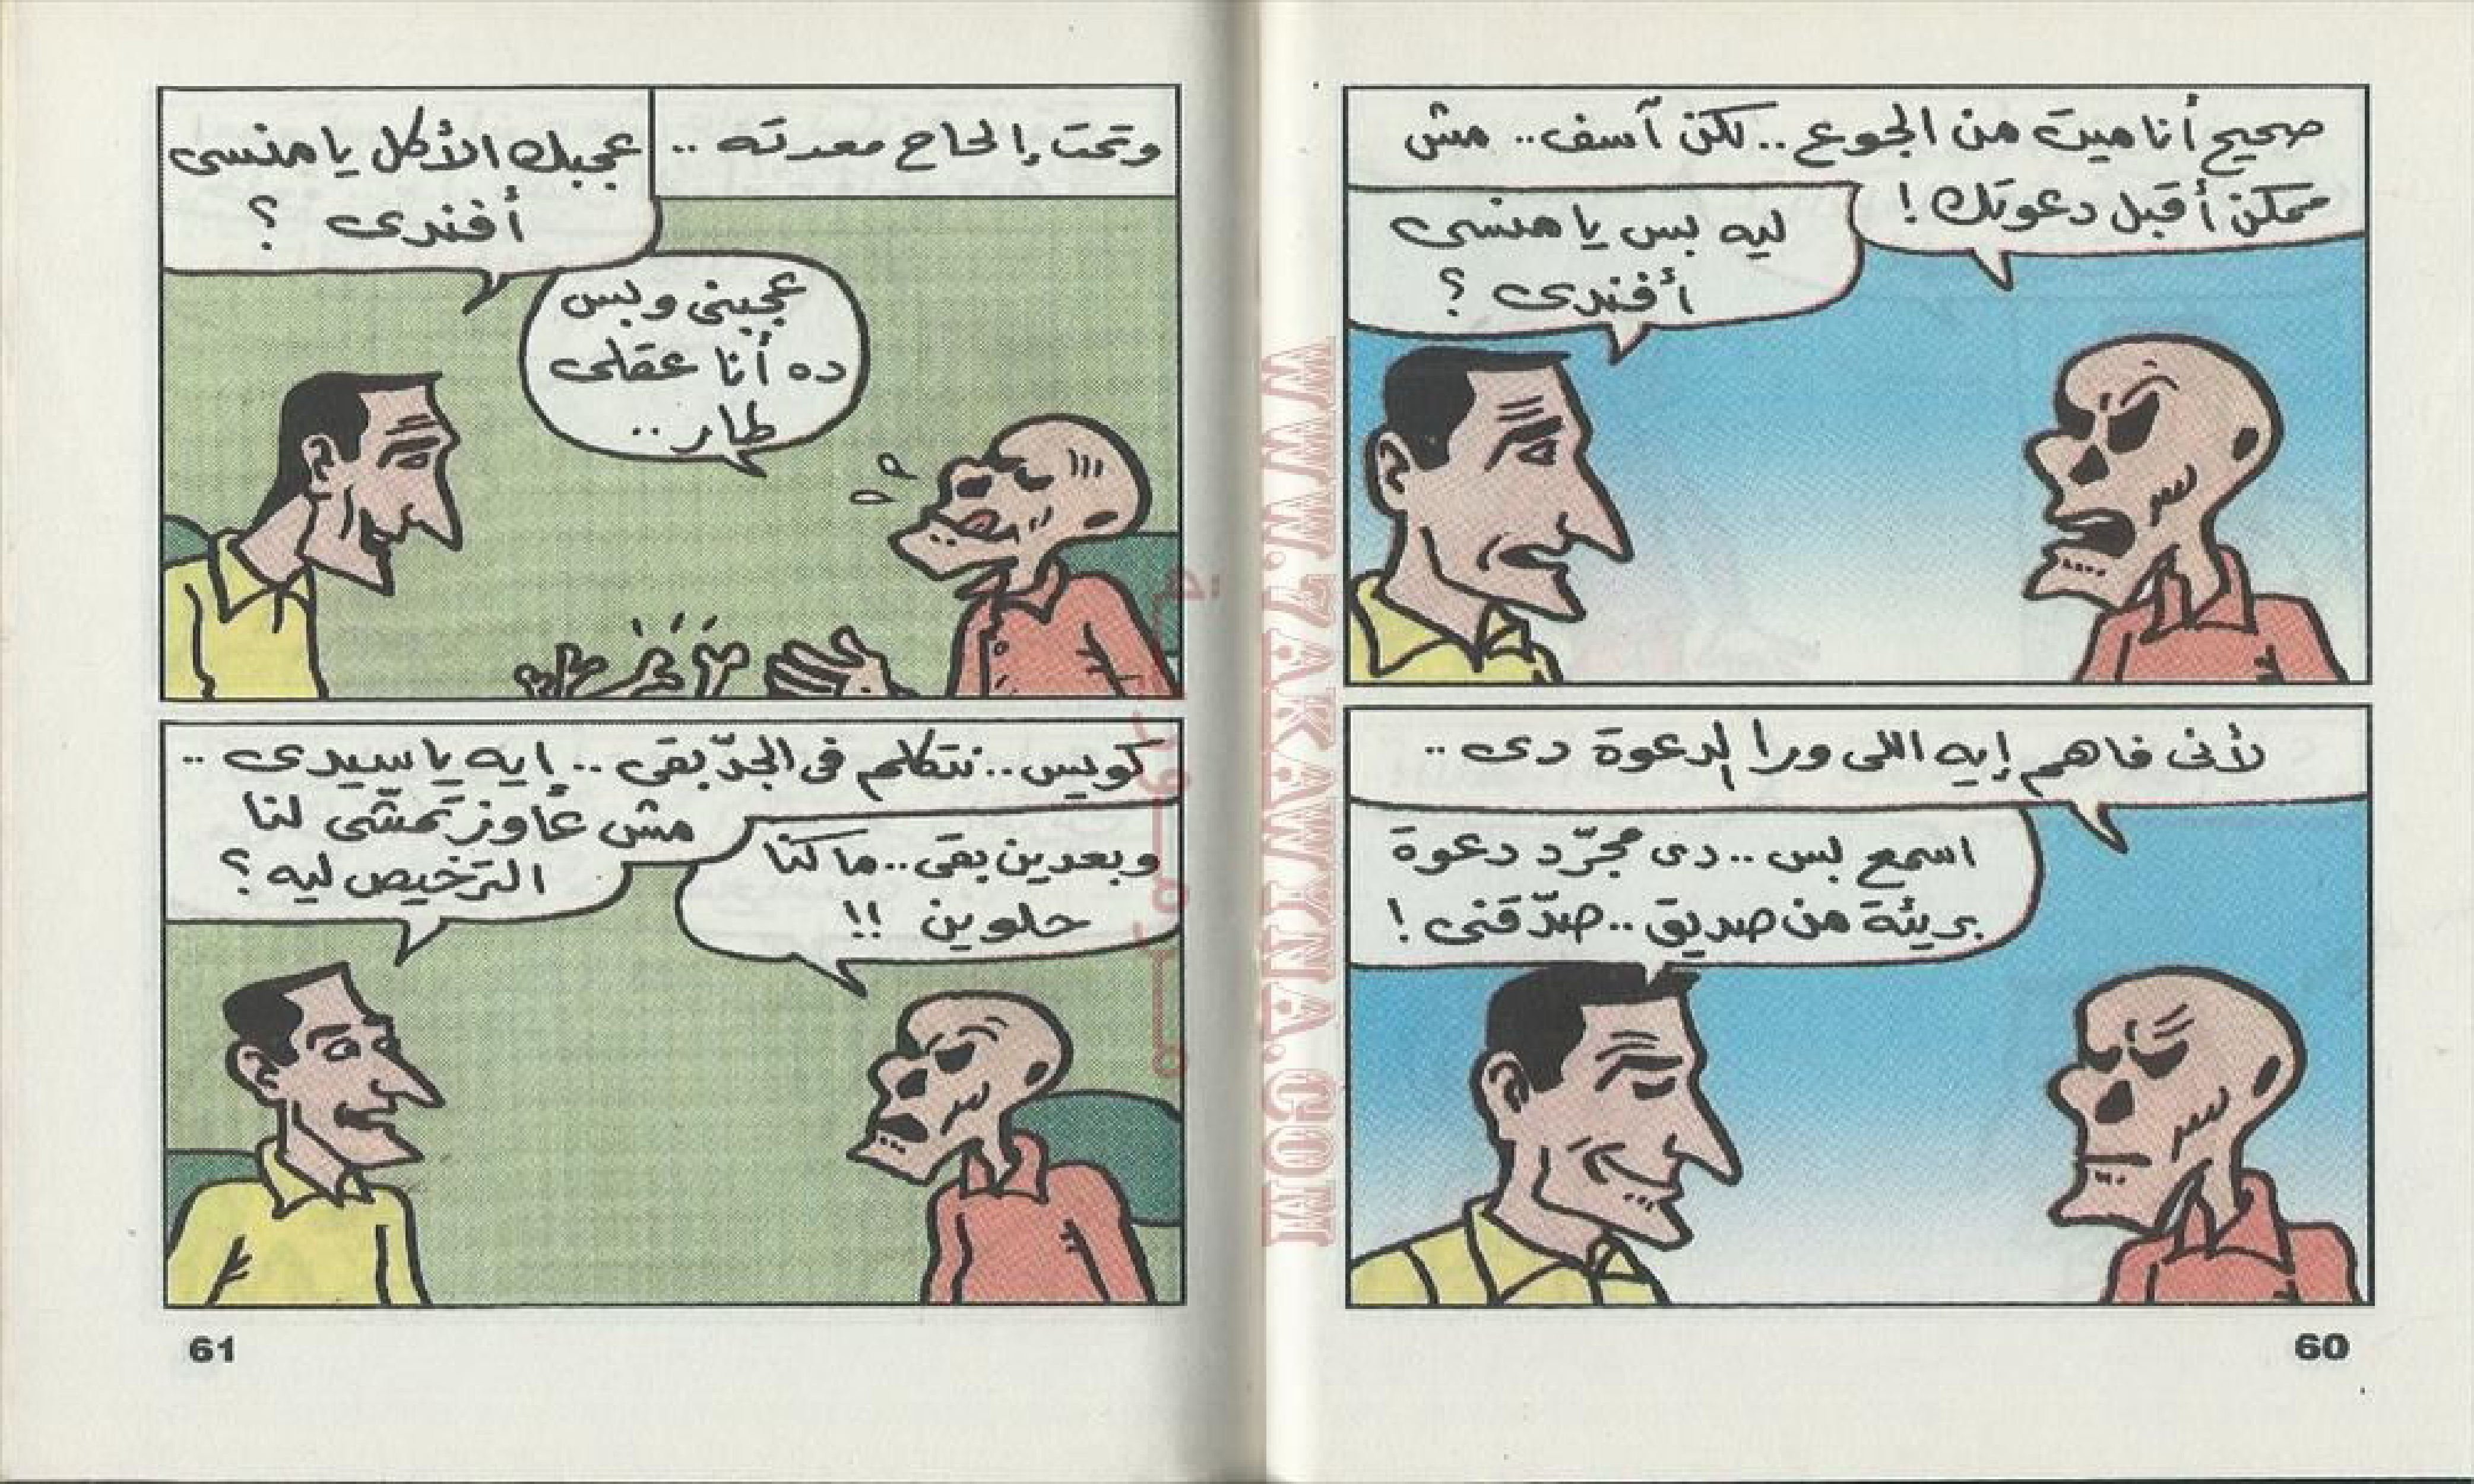 صحيح أنا ميت من الجوع .. لكن آسف .. مش
ممكن أقبل دعوتك !
ليه بس يا منسى
أفندى ؟
لأنى فاهم إيه اللى ورا الدعوة دى ..
اسمع بس .. دى مجرّد دعوة
بريئة من صديق .. صدّقنى !
60
وتحت إلحاح معدته ..
عجبك الأكل يا منسى
أفندى ؟
عجبنى وبس
ده أنا عقلى
طار ..
كويس .. نتكلم فى الجدّ بقى .. إيه يا سيدى ..
مش عاوز تمشّى لنا
الترخيص ليه ؟
وبعدين بقى .. ما كنا
حلوين !!
61
WWW.7AKAWINA.COM